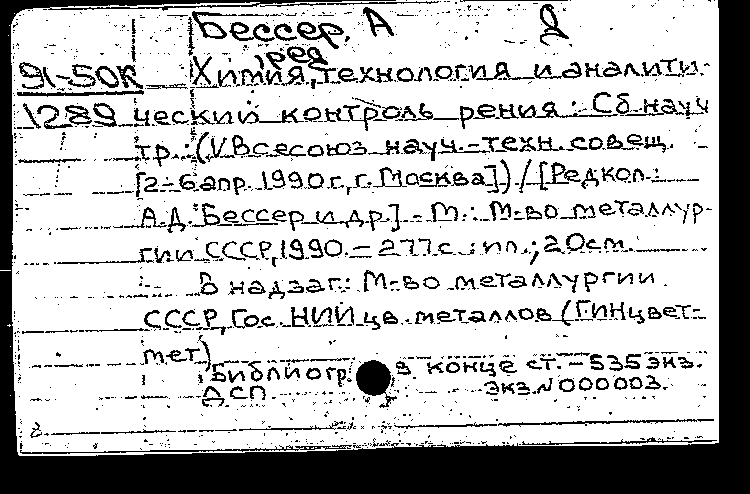 Бессер, А Д
ред
91-50к Химия, технология и аналити-
1289 ческий контроль рения: Сб. науч
тр.: (V Всесоюз науч.-техн. совещ.
[2-6 апр. 1990 г., г. Москва]) / [Редкол.:
А.Д. Бессер и др.] - М.: М-во металлур-
гии СССР, 1990. - 277 с.: ил.; 20 см.
В надзаг.: М-во металлургии
СССР, Гос. НИИ цв. металлов (ГИНцвет-
мет)
Библиогр. в конце ст. - 535 экз.
ДСП. Экз. N 000003.